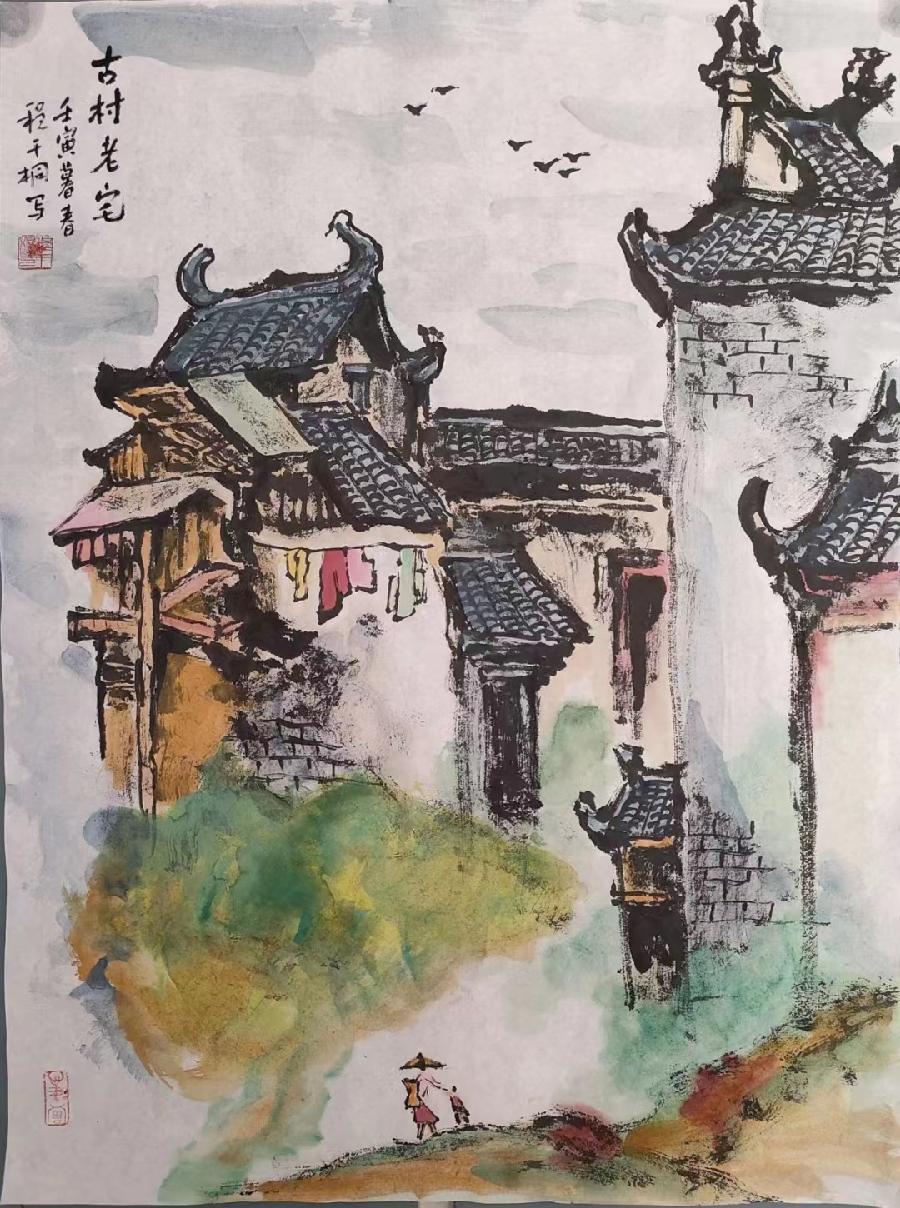 古村老宅
壬寅暮春
程千桐写